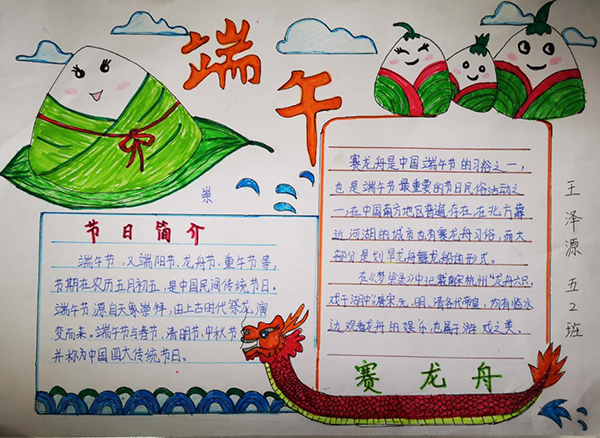 端午
崇
节日简介
端午节,又端阳节、龙舟节、重午节等,
节期在农历五月初五,是中国民间传统节日。
端午节源自天象崇拜,由上古时代祭龙演
变而来。端午节与春节、清明节、中秋节
并称为中国四大传统节日。
赛龙舟是中国端午节的习俗之一,
也是端午节最重要的节日民俗活动之
一,在中国南方地区普遍存在,在北方靠
近河湖的城市也有赛龙舟习俗,而大
部分是划旱龙舟舞龙船的形式。
在《梦粱录》中记载南宋杭州"龙舟六只,
戏于湖中"唐宋元、明、清各代帝皇,均有临水
边观看龙舟的娱乐,也属于游戏之类。
赛龙舟
王泽源 五2班